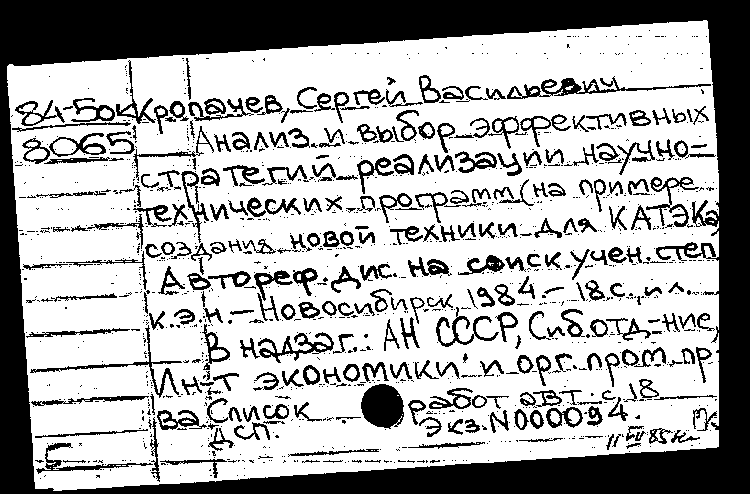 84-5ок Кропачев, Сергей Васильевич
8065 Анализ и выбор эффективных
стратегий реализации научно-
технических программ (на примере
создания новой техники для КАТЭКа)
Автореф. дис. на соиск. учен. степ.
к.э.н. – Новосибирск, 1984. – 18 с., ил.
В надзаг.: АН СССР, Сиб. отд-ние,
Ин-т экономики и орг. пром. пр-
ва Список работ авт. с. 18
ДСП. Экз. N000094.
5 11 VII 85